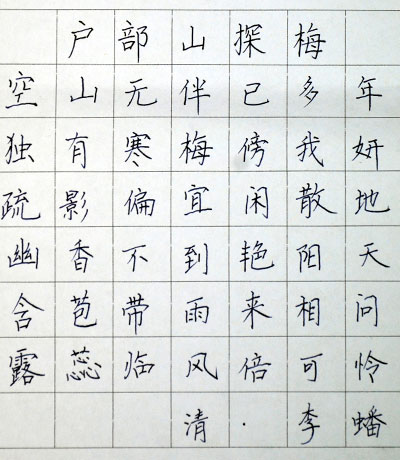 户部山探梅
空山无伴已多年
独有寒梅傍我妍
疏影偏宜闲散地
幽香不到艳阳天
含苞带雨来相问
露蕊临风倍可怜
清·李蟠